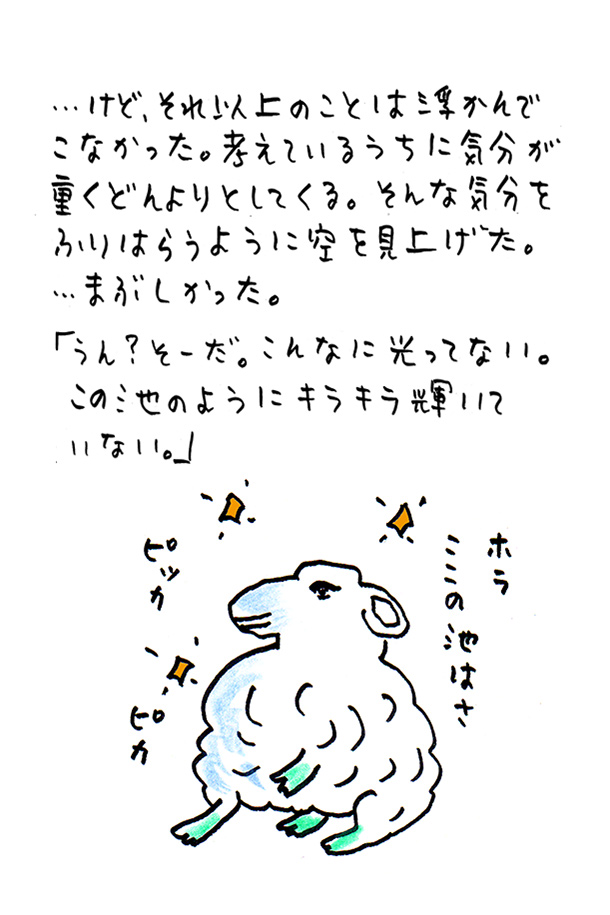 …けど、それ以上のことは浮かんで
こなかった。考えているうちに気分が
重くどんよりとしてくる。そんな気分を
ふりはらうように空を見上げた。
…まぶしかった。
「うん？そーだ。こんなに光ってない。
この池のようにキラキラ輝いて
いない。」
ホラ
ここの池はさ
ピッカ
ピカ